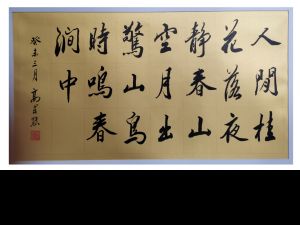 人閒桂
花落夜
靜春山
空月出
驚山鳥
時鳴春
澗中
癸未三月 高